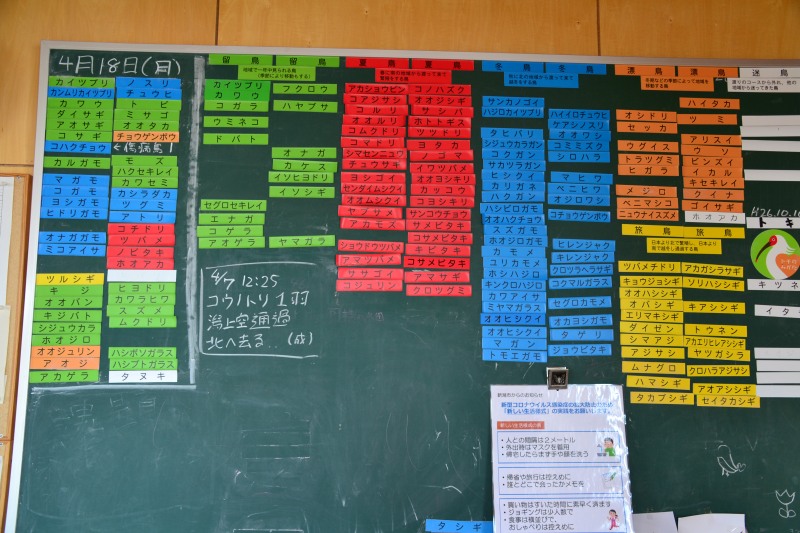 4月18日(月)
カイツブリ
ノスリ
カンムリカイツブリ
チュウヒ
カワウ
トビ
ダイサギ
ミサゴ
アオサギ
オオタカ
コサギ
チョウゲンボウ
コハクチョウ
カルガモ
モズ
ハクセキレイ
カワセミ
マガモ
ジョウビタキ
コガモ
カシラダカ
ヨシガモ
ツグミ
ヒドリガモ
アトリ
コチドリ
オナガガモ
ツバメ
ミコアイサ
ノビタキ
ホオアカ
ツルシギ
キジ
ヒヨドリ
オオバン
カワラヒワ
キジバト
スズメ
シジュウカラ
ムクドリ
ホオジロ
オオジュリン
ハシボソガラス
アオジ
ハシブトガラス
アカゲラ
タヌキ
留鳥
留鳥
地域で一年中見られる鳥
(季節により移動もする)
カイツブリ
フクロウ
カワウ
コガラ
ハヤブサ
ウミネコ
ドバト
オナガ
カケス
イソヒヨドリ
イソシギ
セグロセキレイ
エナガ
コゲラ
アオゲラ
ヤマガラ
4/7 12:25
コウノトリ1羽
潟上空通過
北へ去る..(成)
夏鳥
夏鳥
春に南の地域から渡って来て
繁殖をする鳥
アカショウビン
コノハズク
コアジサシ
オオジシギ
コルリ
サシバ
オオルリ
ホトトギス
コムクドリ
ツツドリ
コマドリ
ヨタカ
シマセンニュウ
ノゴマ
チュウサギ
イワツバメ
ヨシゴイ
オオヨシキリ
センダイムシクイ
カッコウ
オオムシクイ
コヨシキリ
ヤブサメ
サンコウチョウ
アマツバメ
コサメビタキ
キビタキ
ショウドウツバメ
コサメビタキ
ササゴイ
アマサギ
コジュリン
クロツグミ
冬鳥
冬鳥
秋に北の地域から渡って来て
越冬をする鳥
サンカノゴイ
ハジロカイツブリ
ハイイロチュウヒ
ケアシノスリ
タヒバリ
オオワシ
シジュウカラガン
コミミズク
コクガン
シロハラ
サカツラガン
ヒシクイ
マヒワ
カリガネ
ベニヒワ
ハクガン
オジロワシ
ハシビロガモ
コチョウゲンボウ
オオハクチョウ
スズガモ
ホオジロガモ
ヒレンジャク
カモメ
キレンジャク
ユリカモメ
クロツラヘラサギ
ホシハジロ
コクマルガラス
キンクロハジロ
カワアイサ
セグロカモメ
ミヤマガラス
オオヒシクイ
オカヨシガモ
オオヒシクイ
タゲリ
マガン
ジョウビタキ
トモエガモ
タシギ
漂鳥
漂鳥
冬期などの季節によって地域を
移動する鳥
ハイタカ
オシドリ
ツミ
セッカ
アリスイ
ウグイス
ウソ
トラツグミ
ビンズイ
ヒガラ
イカル
キセキレイ
メジロ
クイナ
ベニマシコ
ゴイサギ
ニュウナイスズメ
ホオアカ
旅鳥
旅鳥
日本より北で繁殖し、日本より
南で越冬し通過する鳥
ツバメチドリ
アカガシラサギ
キョウジョシギ
ソリハシシギ
オオハシシギ
オバシギ
キアシシギ
エリマキシギ
ダイゼン
トウネン
シマアジ
アカエリヒレアシシギ
アジサシ
ヤツガシラ
ムナグロ
クロハラアジサシ
ハマシギ
アオアシシギ
タカブシギ
セイタカシギ
迷鳥
渡りのコースから外れ、他の
地域から渡ってきた鳥
H26.10.1
トキ
キツネ
イタ
新型コロナウイルス感染症の拡大防止のため
「新しい生活様式」の実践をお願いします。
・人との間隔は2メートル
・外出時はマスクを着用
・帰宅したらまず手や顔を洗う
・帰省や旅行は控えめに
・誰とどこで会ったかメモを
・買い物はすいた時間に素早く済ます
・ジョギングは少人数で
・食事は横並びで、
おしゃべりは控えめに